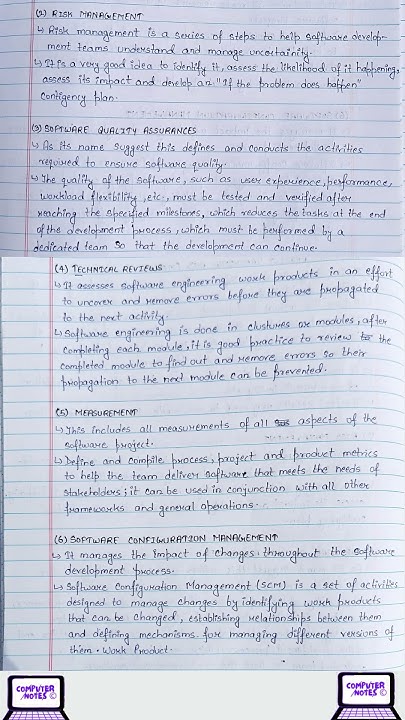 (2) RISK MANAGEMENT
↳ Risk management is a series of steps to help software develop-
ment teams understand and manage uncertainity.
↳ It is a very good idea to identify it, assess the likelihood of it happening,
assess its impact and develop an "If the problem does happen"
contigency plan.
(3) SOFTWARE QUALITY ASSURANCES
↳ As its name suggest this defines and conducts the activities
required to ensure software quality.
↳ The quality of the software, such as user experience, performance,
workload flexibility, etc., must be tested and verified after
reaching the specified milestones, which reduces the tasks at the end
of the development process, which must be performed by a
dedicated team so that the development can continue.
(4) TECHNICAL REVIEWS
↳ It assesses software engineering work products in an effort
to uncover and remove errors before they are propagated
to the next activity.
↳ Software engineering is done in clusturs or modules, after
completing each module, it is good practice to review the
completed module to find out and remove errors so their
propagation to the next module can be prevented.
(5) MEASUREMENT
↳ This includes all measurements of all aspects of the
software project.
↳ Define and compile process, project and product metrics
to help the team deliver software that meets the needs of
stakeholders; it can be used in conjunction with all other
frameworks and general operations.
(6) SOFTWARE CONFIGURATION MANAGEMENT
↳ It manages the impact of changes throughout the software
development process.
↳ Software Configuration Management (SCM) is a set of activities
designed to manage changes by identifying work products
that can be changed, establishing relationships between them
and defining mechanisms for managing different versions of
them. Work Product.
COMPUTER
NOTES ©
COMPUTER
NOTES ©
COMPUTER
NOTES ©